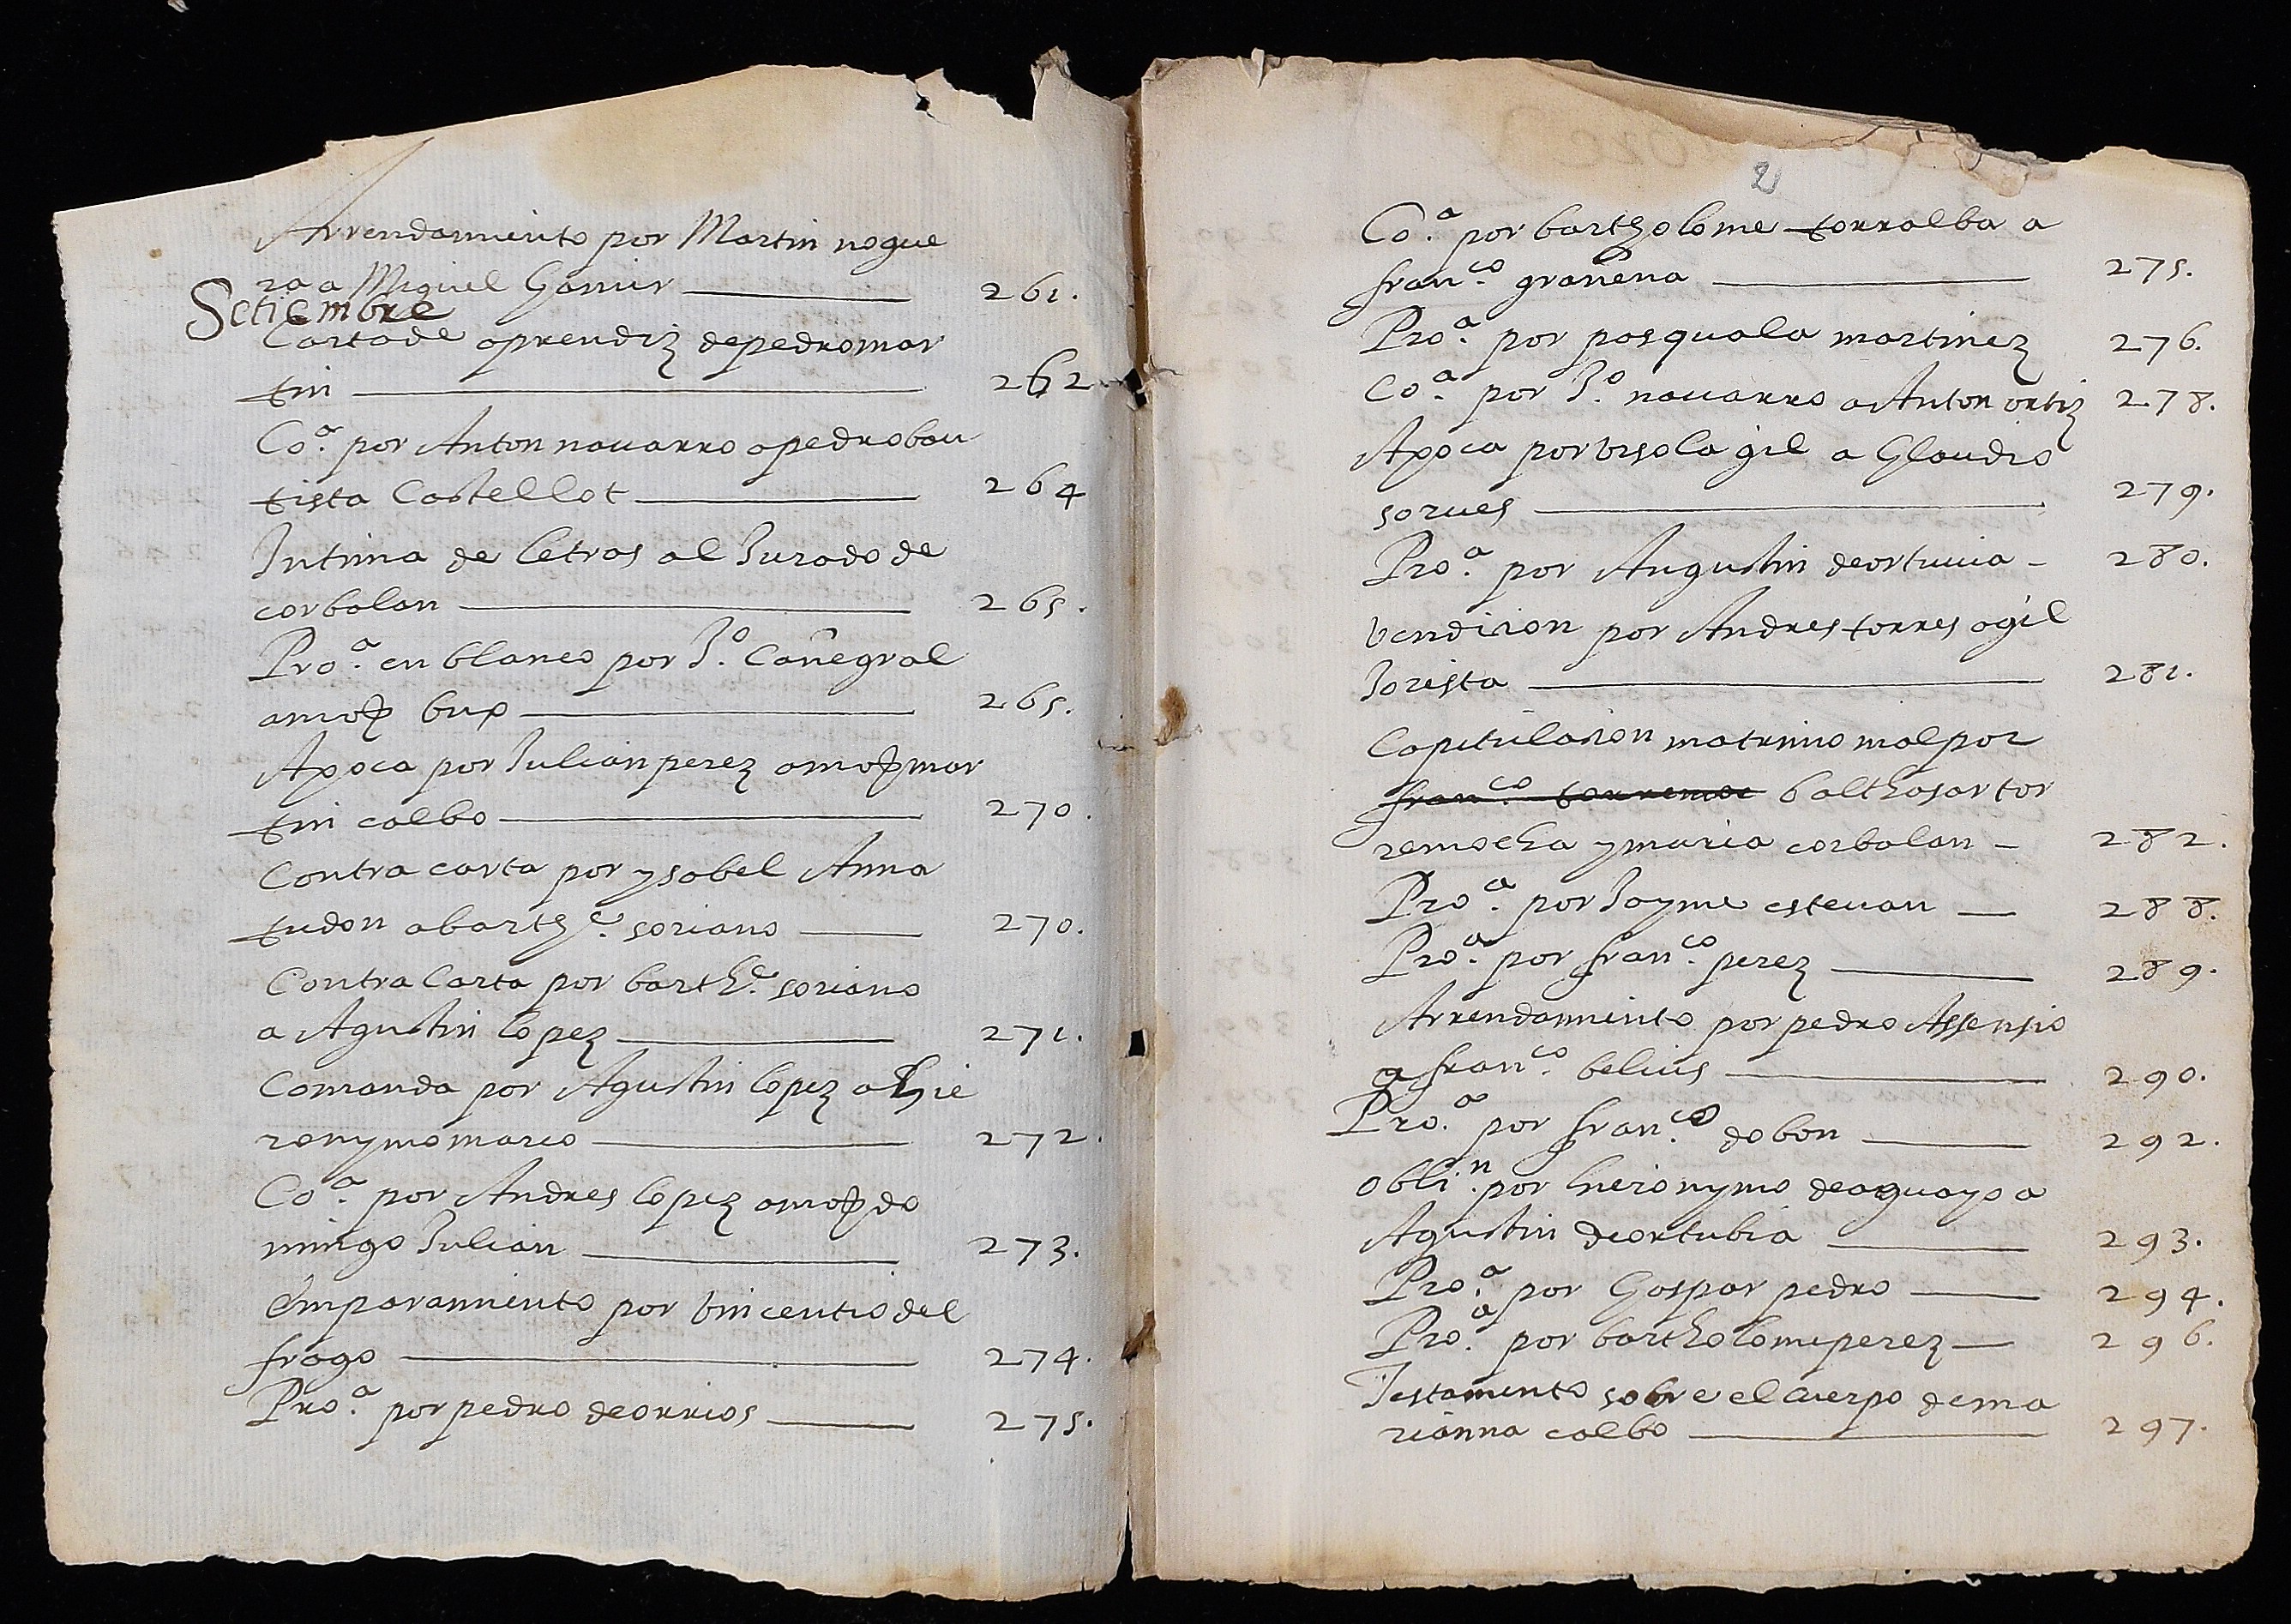 Arrendamiento por Martin nogue
ra a Miguel Gamir 261.
Setiembre
Carta de aprendiz de pedro mar
tin 262
Co.ª por Anton nauarro a pedro bau
tista Castellot 264
Intima de letras al Jurado de
corbalan 265.
Pro.ª en blanco por J.º Cañegral
a mos 265.
Apoca por Julian perez a mos mar
tin calbo 270.
Contra carta por ysabel Anna
tudon a barth.e soriano 270.
Contra Carta por barth.e soriano
a Agustin lopez 271.
Comanda por Agustin lopez a hie
ronymo marco 272.
Co.ª por Andres lopez a mos do
mingo Julian 273.
Emparamiento por vincentio del
frago 274.
Pro.ª por pedro de orrios 275.
2
Co.ª por bartholome torralba a
fran.co grañena 275.
Pro.ª por pasquala martinez 276.
Co.ª por J.º nauarro a Anton ortiz 278.
Apoca por vrsola gil a Glaudio
sorues 279.
Pro.ª por Augustin de ortuuia 280.
vendicion por Andres torres a gil
Jorista 281.
Capitulacion matrimonial por
fran.co torremoc balthasar tor
remocha y maria corbalan 282.
Pro.ª por Jayme esteuan 288.
Pro.ª por fran.co perez 289.
Arrendamiento por pedro Assensio
a fran.co belius 290.
Pro.ª por fran.co dobon 292.
obli.n por hieronymo de aguayo a
Agustin de ortubia 293.
Pro.ª por Gaspar pedro 294.
Pro.ª por bartholome perez 296.
Testamento sobre el cuerpo de ma
rianna calbo 297.